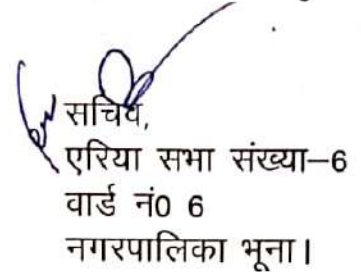 सचिव,
एरिया सभा संख्या–6
वार्ड नं0 6
नगरपालिका भूना।